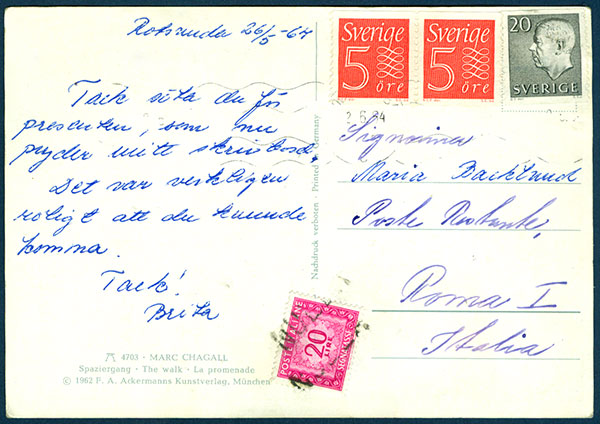 Rotsunda 26/5-64
Tack söta du för
presenten, som nu
pryder mitt skrivbord.
Det var verkligen
roligt att du kunde
komma.
Tack!
Brita
4703 · MARC CHAGALL
Spaziergang · The walk · La promenade
© 1962 F. A. Ackermanns Kunstverlag, München
Nachdruck verboten · Printed Germany
Sverige
5 öre
Sverige
5 öre
20
SVERIGE
2 6 64
Signorina
Maria Backlund
Poste Restante,
Roma I
Italia
POSTE ITALIANE
20
LIRE
SEGNATASSE